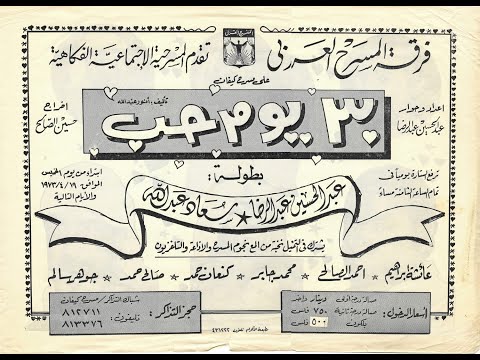 فرقة المسرح العربي
تقدم المسرحية الاجتماعية الفكاهية
على مسرح كيفان
اعداد وحوار
عبد الحسين عبد الرضا
تأليف: أنور عبد الله
اخراج
حسين الصالح
٣٠ يوم حب
بطولة:
ترفع الستارة يومياً في
تمام الساعة الثامنة مساءً
ابتداء من يوم الخميس
الموافق ١٩٧٣/٤/١٩
والأيام التالية
عبد الحسين عبد الرضا ★ سعاد عبد الله
يشترك في التمثيل نخبة من ألمع نجوم المسرح والاذاعة والتلفزيون
عائشة ابراهيم ★ احمد الصالح ★ محمد جابر ★ كنعان حمد ★ صالح حمد ★ جوهر سالم
أسعار الدخول:
صالة درجة أولى دينار واحد
صالة درجة ثانية ٧٥٠ فلس
بلكون ٥٠٠ فلس
حجز التذاكر:
شباك التذاكر / مسرح كيفان
٨١٢٧١١
تليفون: ٨١٣٣٧٦